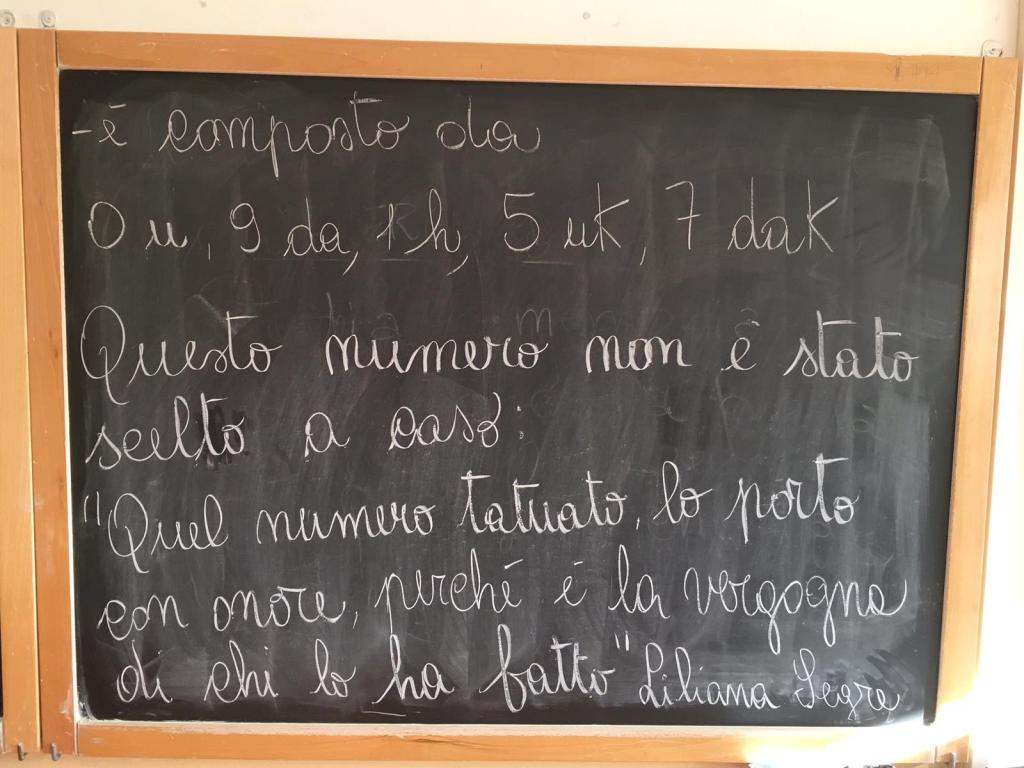 - è composto da
0 u, 9 da, 1 h, 5 uk, 7 dak
Questo numero non è stato
scelto a caso:
"Quel numero tatuato, lo porto
con onore, perché è la vergogna
di chi lo ha fatto" Liliana Segre